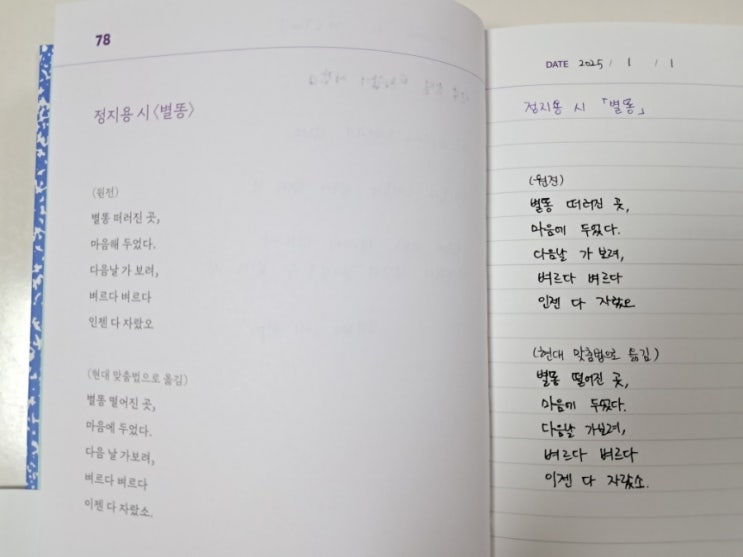 78
정지용 시 〈별똥〉
(원전)
별똥 떠러진 곳,
마음해 두었다.
다음날 가 보려,
벼르다 벼르다
인젠 다 자랐오
(현대 맞춤법으로 옮김)
별똥 떨어진 곳,
마음에 두었다.
다음 날 가보려,
벼르다 벼르다
이젠 다 자랐소.
DATE 2025 / 1 / 1
정지용 시 「별똥」
(원전)
별똥 떠러진 곳,
마음에 두었다.
다음날 가 보려,
벼르다 벼르다
인젠 다 자랐오
(현대 맞춤법으로 옮김)
별똥 떨어진 곳,
마음에 두었다.
다음날 가보려,
벼르다 벼르다
이젠 다 자랐소.